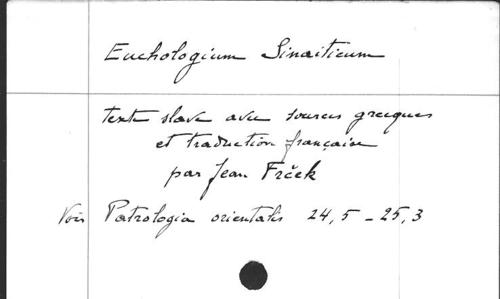 Euchologium Sinaiticum
texte slave avec sources grecques
et traduction française
par Jean Frček
Voir Patrologia orientalis 24,5 - 25,3